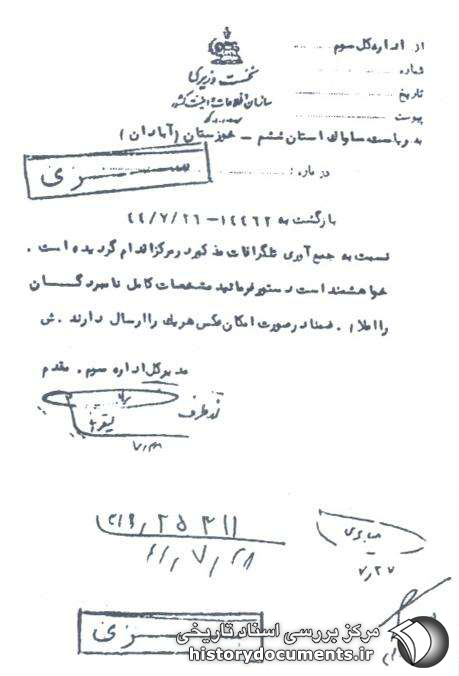 از : اداره کل سوم
شماره
تاریخ
پیوست
نخست وزیری
سازمان اطلاعات و امنیت کشور
به ریاست ساواک استان ششم – خوزستان (آبادان)
درباره :
سری
بازگشت به ۱۴۴۶۲–۴۴/۷/۲۶
نسبت به جمع آوری تلگرافات مذکور در مرکز اقدام گردیده است .
خواهشمند است دستور فرمائید مشخصات کامل نامبردگان
را اعلام . ضمنا در صورت امکان عکس هر یک را ارسال دارند . ش
مدیر کل اداره سوم . مقدم
از طرف
۴۴٫۷٫۲۸
صابری
۷٫۲۷
سری
مرکز بررسی اسناد تاریخی
historydocuments.ir